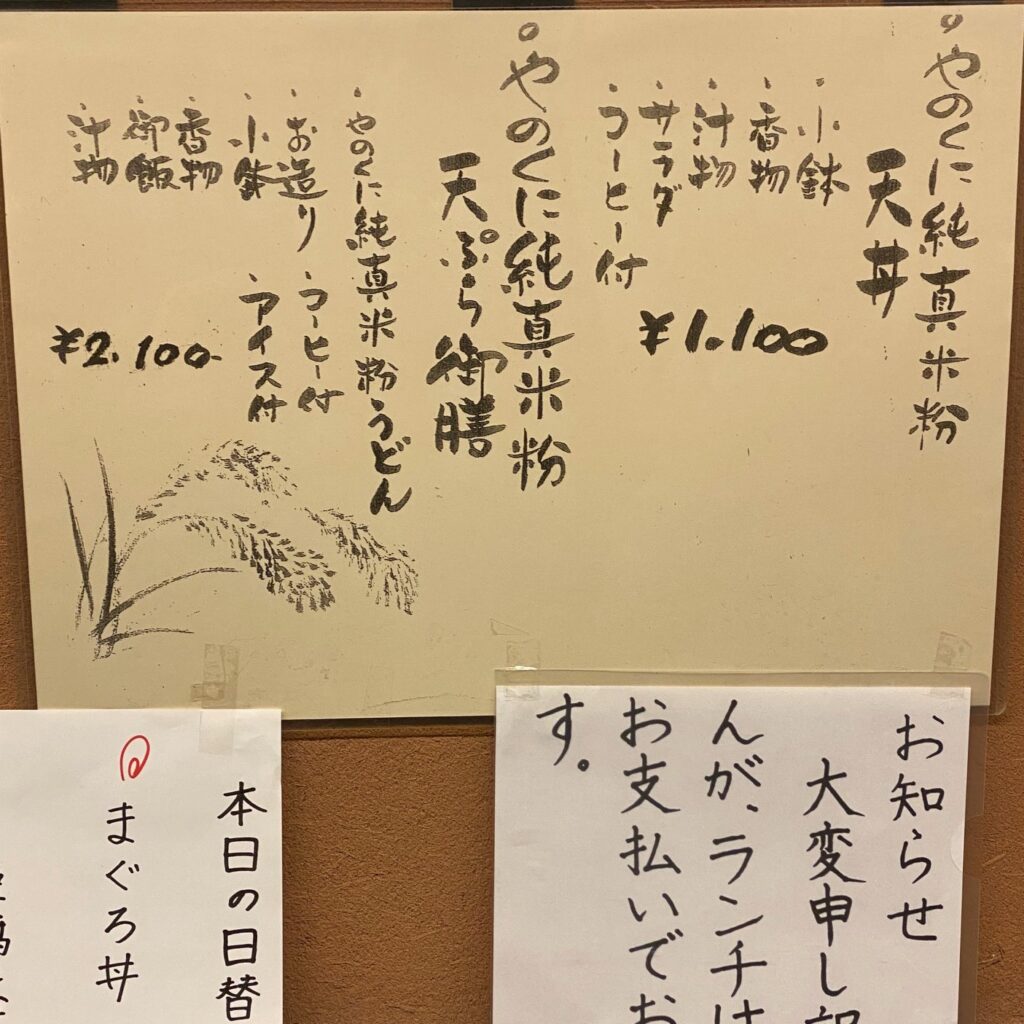 やのくに純真米粉
天丼
・小鉢
・香物
・汁物
・サラダ
・コーヒー付
¥1.100
やのくに純真米粉
天ぷら御膳
・やのくに純真米粉うどん
・お造り
・小鉢
・香物
・御飯
・汁物
・コーヒー付
・アイス付
¥2.100
お知らせ
大変申し訳
んが、ランチは
お支払いでお
す。
本日の日替
まぐろ丼